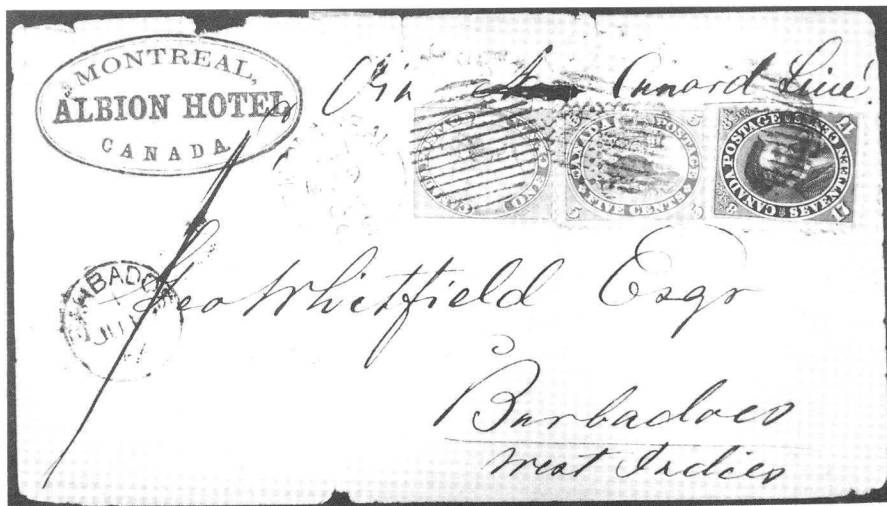 MONTREAL,
ALBION HOTEL
CANADA
Via Cunard Line
CANADA POSTAGE
FIVE CENTS
5 5 5 5
CANADA POSTAGE
SEVENTEEN CENTS
17
BARBADOES
Geo Whitfield Esqr
Barbadoes
West Indies